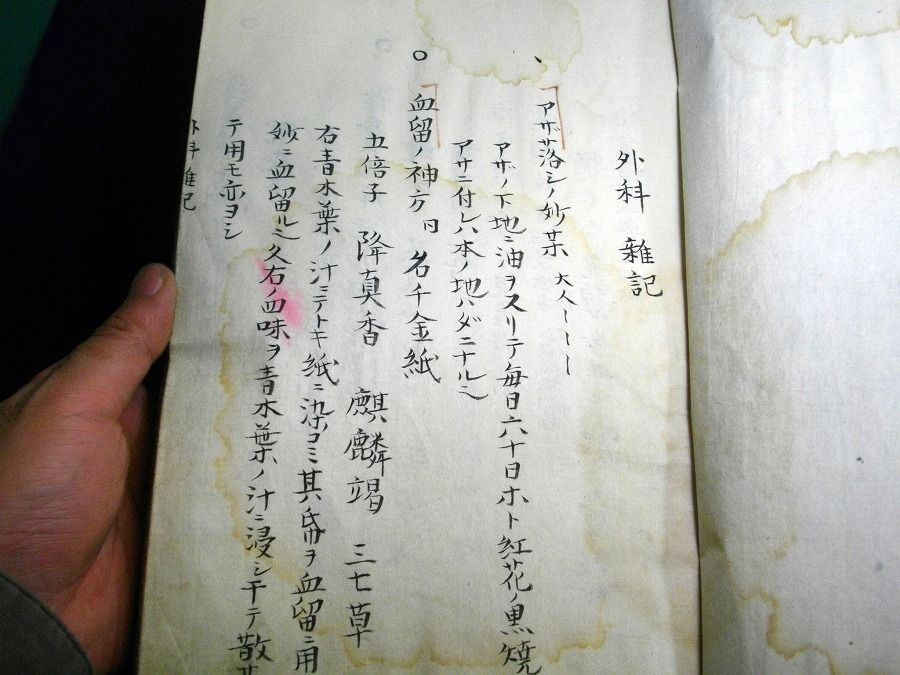 外科 雜記
アザ落シノ妙薬 大人
アザノ下地ニ油ヲスリテ毎日六十日ホト紅花ノ黒焼
アサニ付レハ本ノ地ハダニナル
血留ノ神方曰 名千金紙
五倍子 降真香 麒麟竭 三七草
右青木葉ノ汁ニテトキ紙ニ染コミ其帋ヲ血留ニ用
妙ニ血留ル 又右ノ四味ヲ青木葉ノ汁ニ浸シ干テ散
テ用モ亦ヨシ
外科雑記